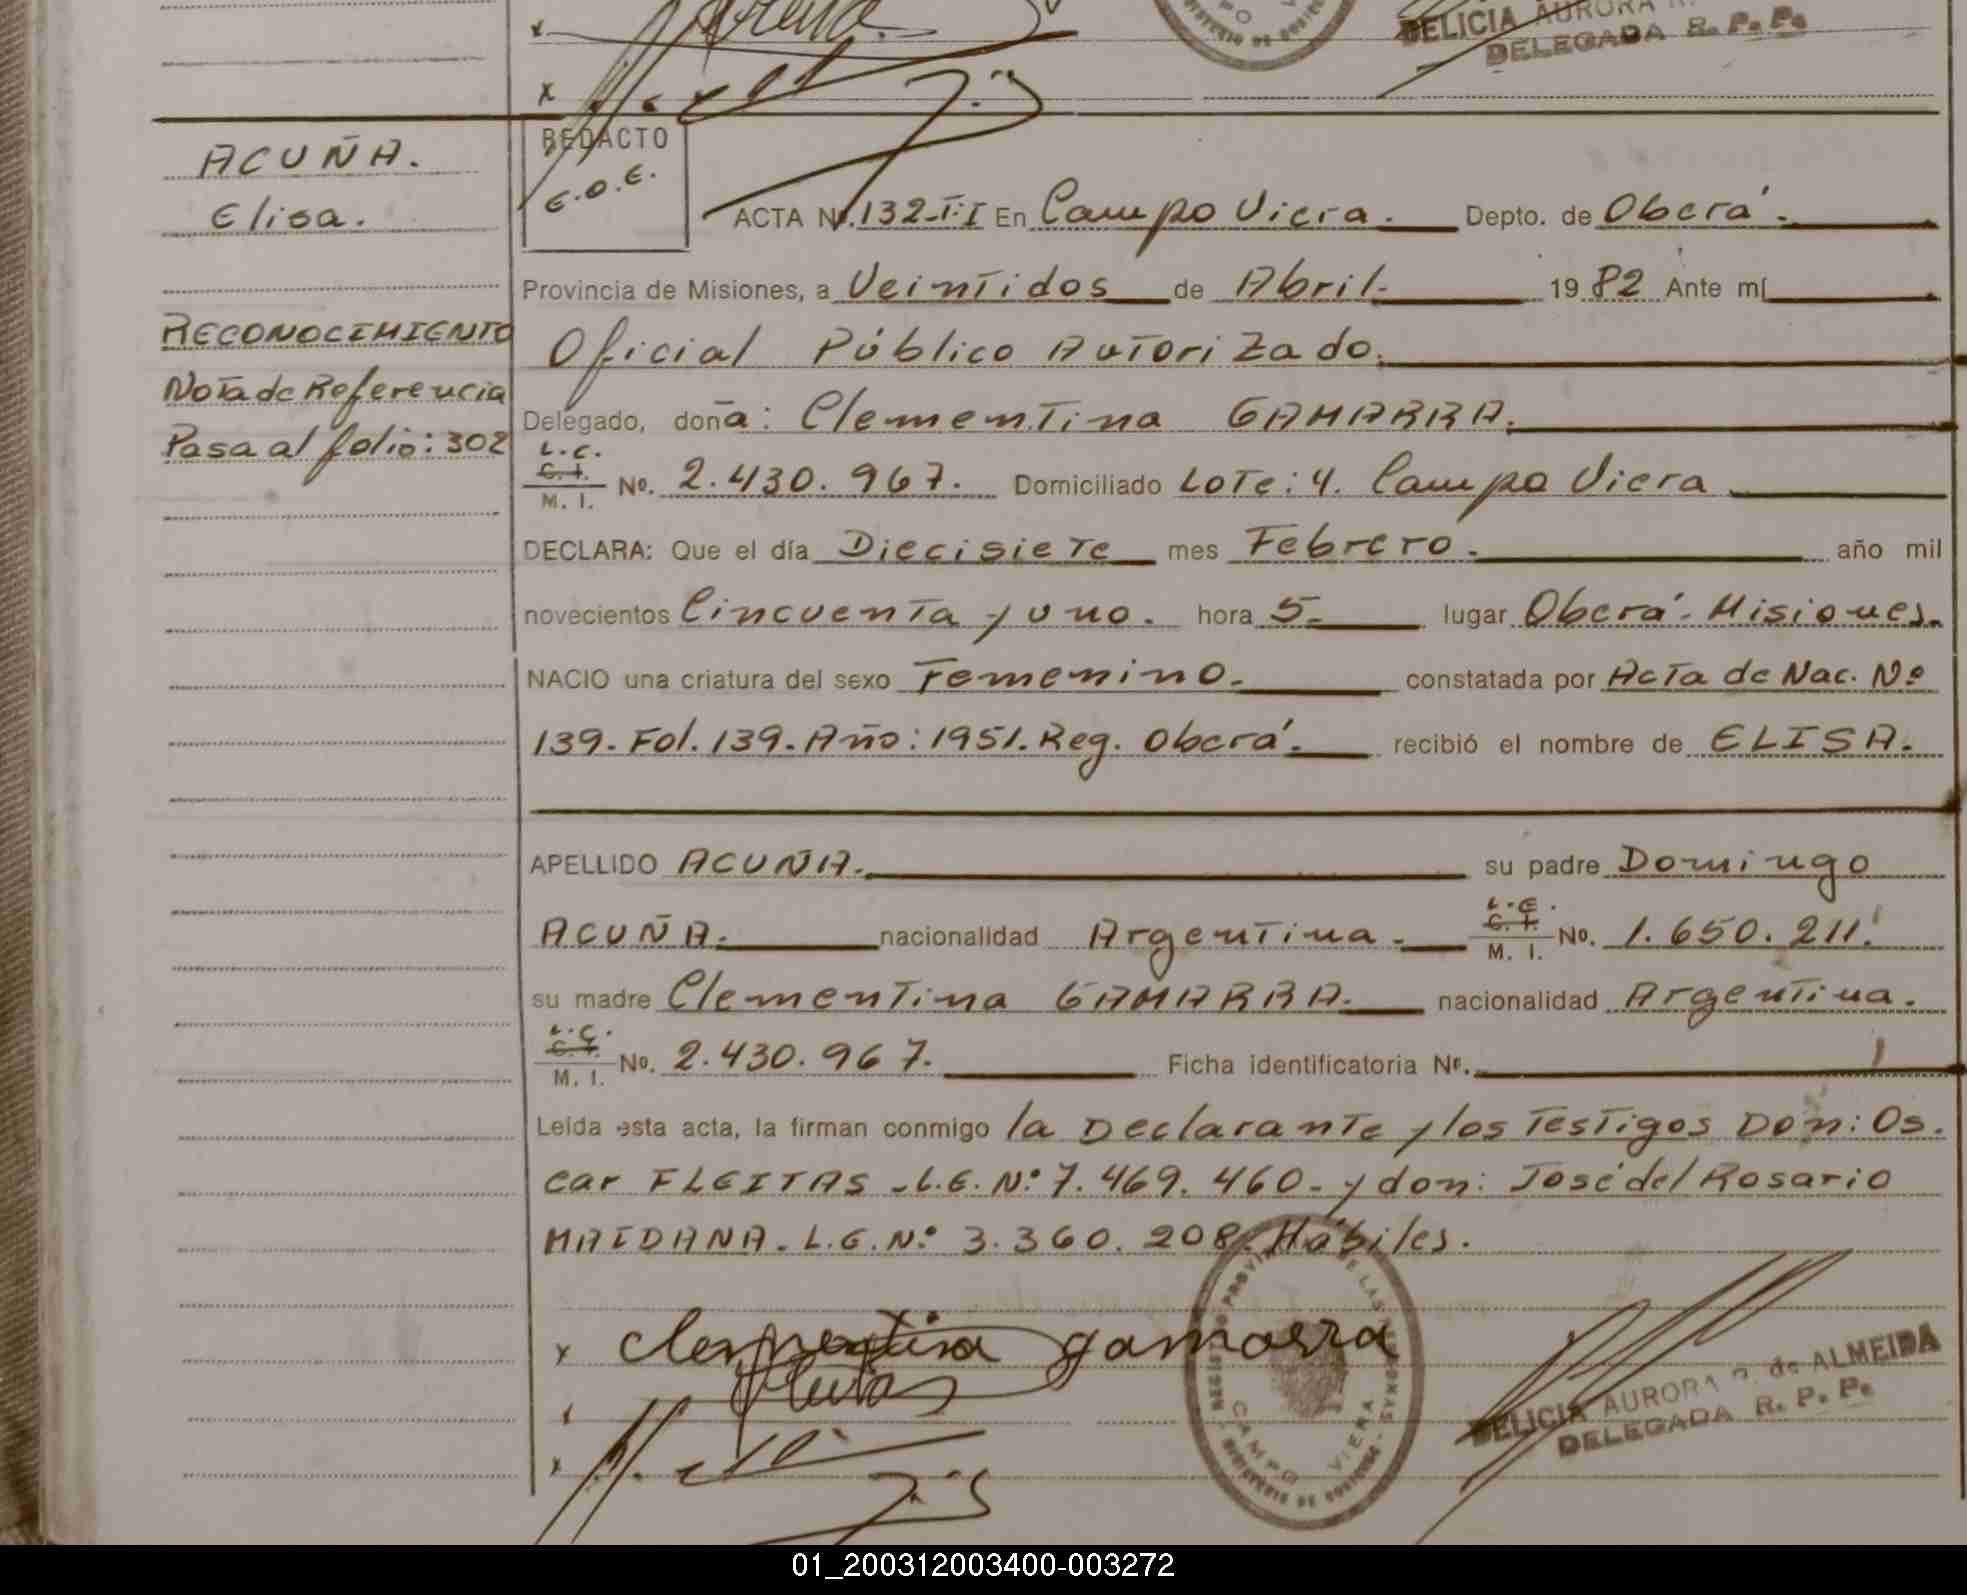 DELICIA AURORA
DELEGADA R. P. P.
ACUÑA.
Elisa.
RECONOCIMIENTO
Nota de Referencia
Pasa al folio: 302
REDACTO
E.O.E.
ACTA Nº. 132-T:I En Campo Viera. Depto. de Oberá.
Provincia de Misiones, a Veintidos de Abril. 1982 Ante mí
Oficial Público Autorizado.
Delegado, doña: Clementina GAMARRA.
L.C.
C. I.
M. I. No. 2.430.967. Domiciliado Lote: 4. Campo Viera
DECLARA: Que el día Diecisiete mes Febrero. año mil
novecientos Cincuenta y uno. hora 5. lugar Oberá. Misiones.
NACIO una criatura del sexo Femenino. constatada por Acta de Nac. Nº
139. Fol. 139. Año: 1951. Reg. Oberá. recibió el nombre de ELISA.
APELLIDO ACUÑA. su padre Domingo
ACUÑA. nacionalidad Argentina. L.E. C. I. M. I. No. 1.650.211.
su madre Clementina GAMARRA. nacionalidad Argentina.
L.C.
C. I.
M. I. No. 2.430.967. Ficha identificatoria Nº.
Leída esta acta, la firman conmigo la Declarante y los Testigos Don: Os.
car FLEITAS - L.E. Nº 7.469.460 - y don: José del Rosario
MAIDANA. L.E. Nº 3.360.208. Hábiles.
x Clementina gamarra
CAMPO VIERA
DELICIA AURORA R. de ALMEIDA
DELEGADA R. P. P.
01_200312003400-003272